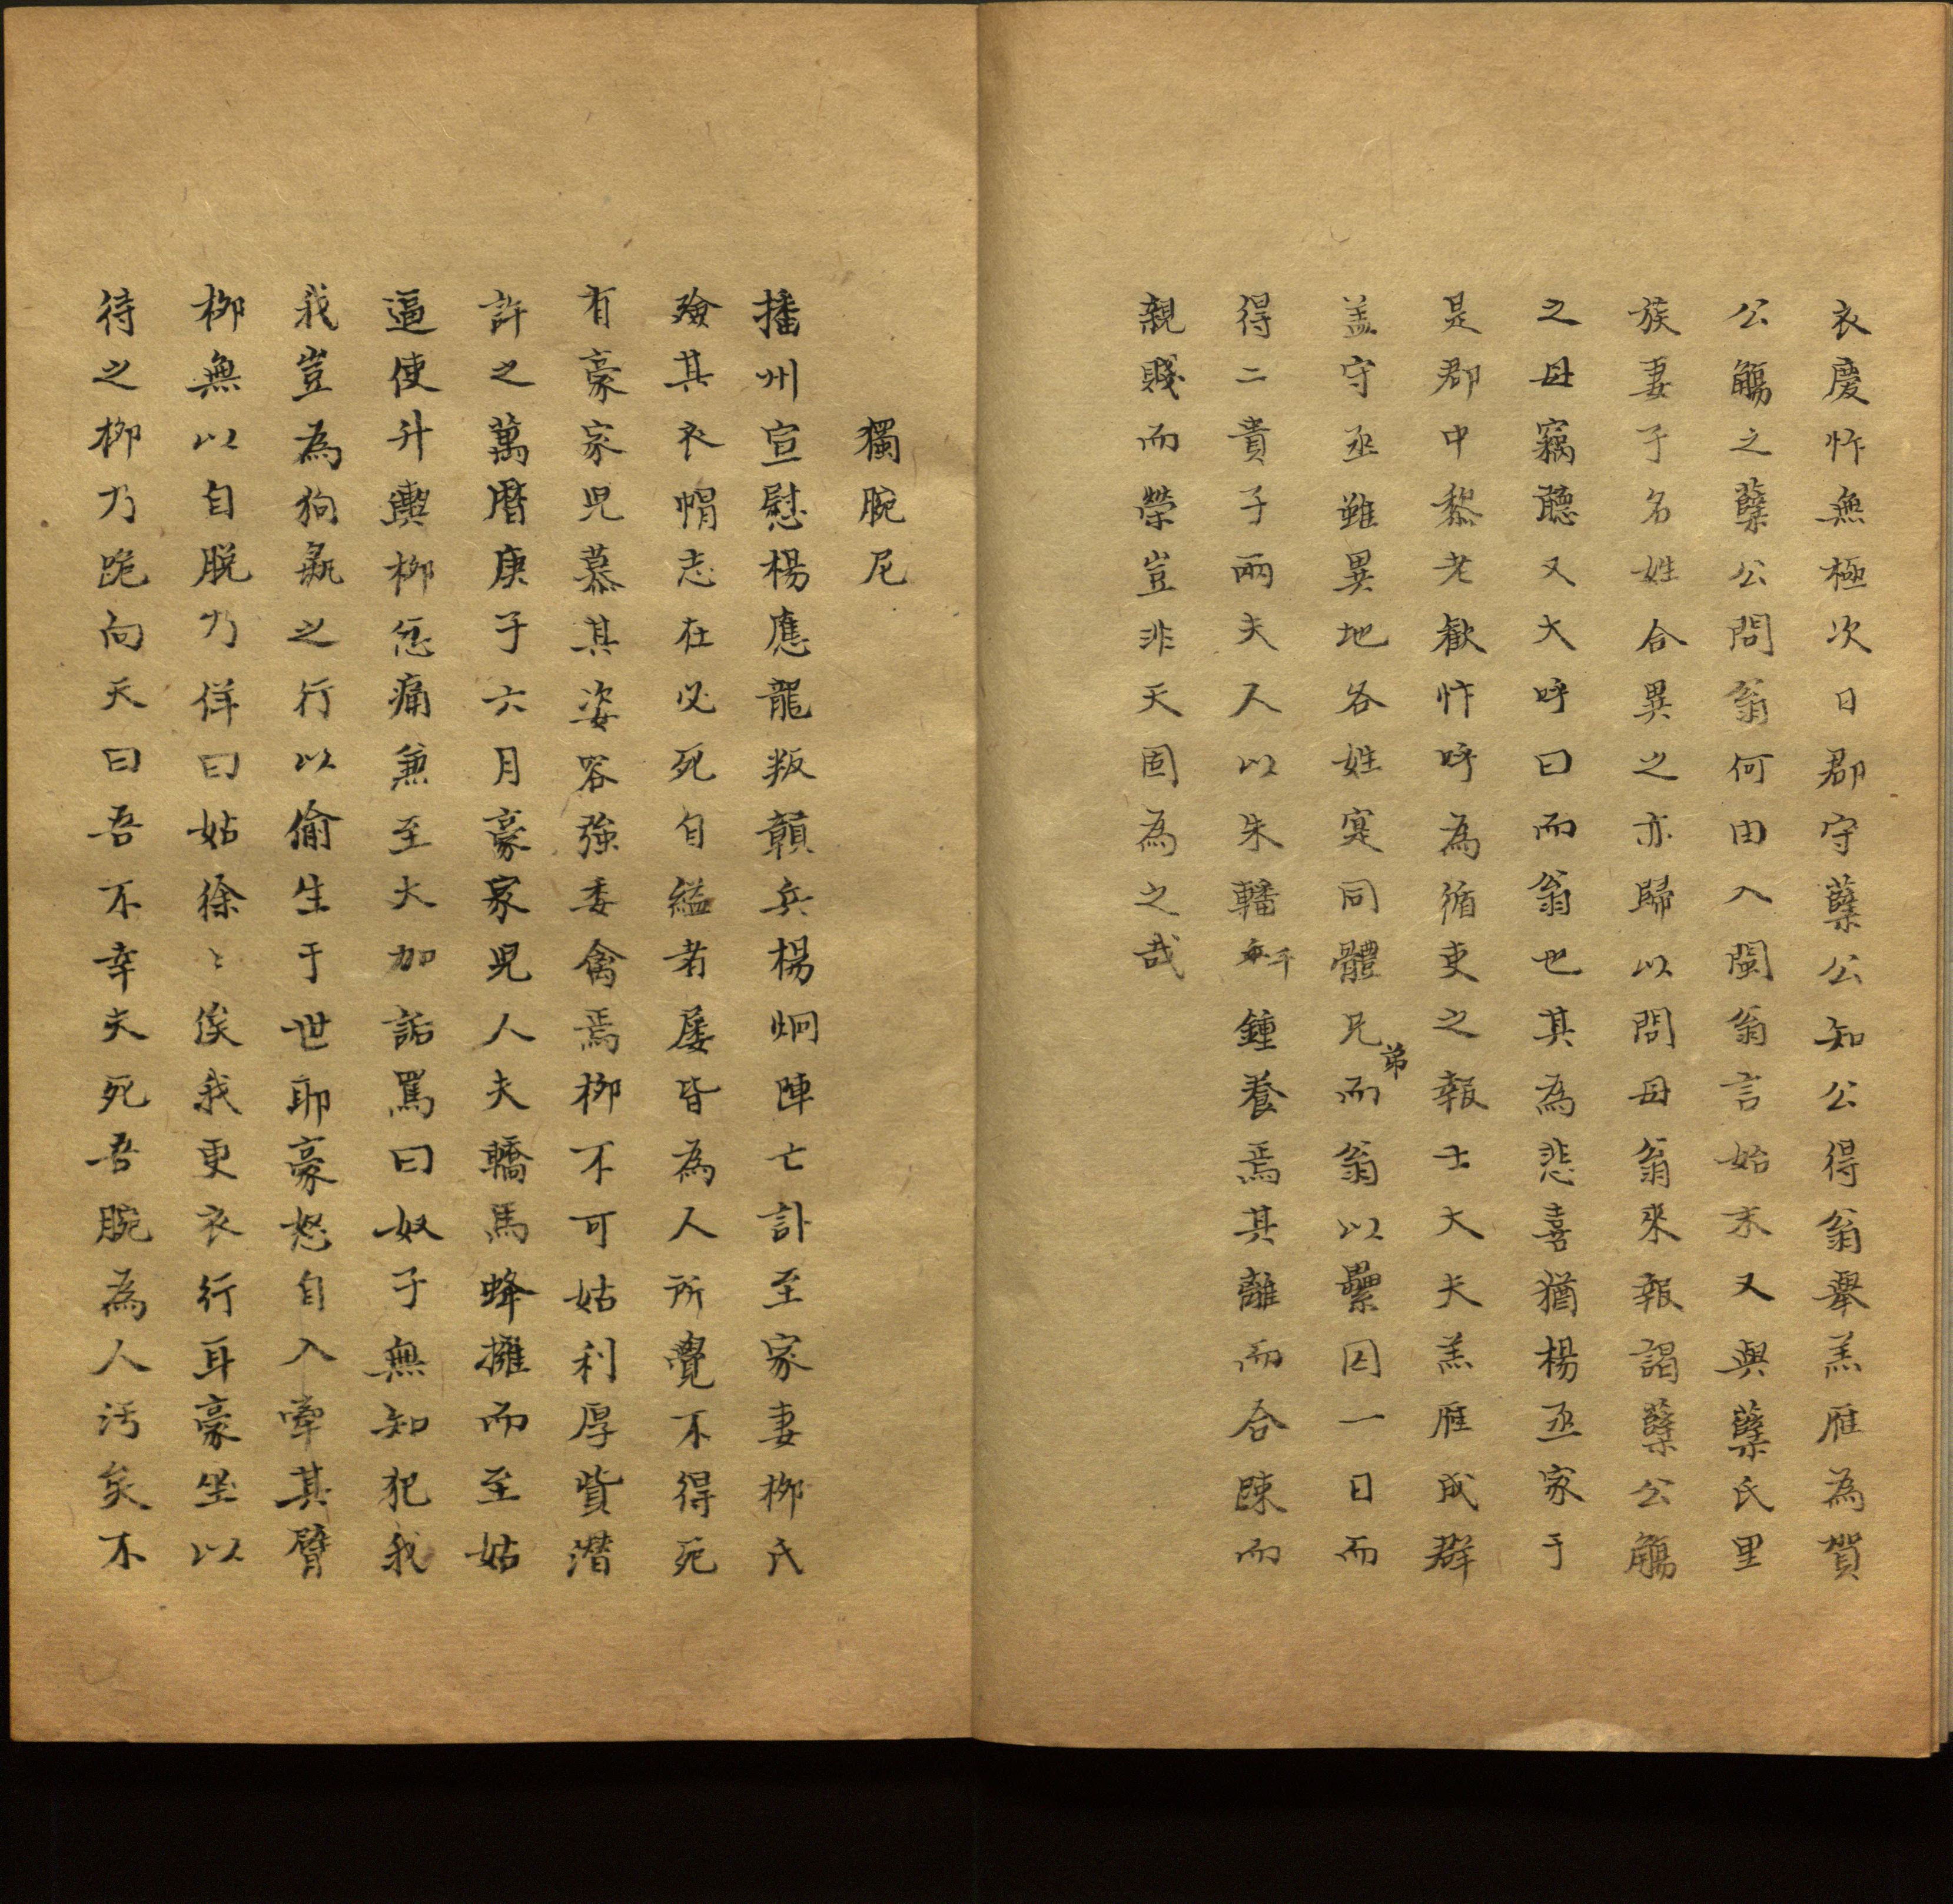 衣慶忭無極次日郡守蘖公知公得翁舉羔雁為賀
公觴之蘖公問翁何由入閩翁言始末又與蘖氏里
族妻子名姓合異之亦歸以問母翁來報謁蘖公觴
之母竊聽又大呼曰而翁也其為悲喜猶楊丞家于
是郡中黎老歡忭呼為循吏之報士大夫羔雁成群
盖守丞雖異地各姓寔同體兄弟而翁以纍囚一日而
得二貴子兩夫人以朱轓千鍾養焉其離而合踈而
親賤而榮豈非天固為之哉
獨腕尼
播州宣慰楊應龍叛贑兵楊炯陣亡訃至家妻柳氏
殮其衣帽志在必死自縊者屡皆為人所覺不得死
有豪家児慕其姿容強委禽焉柳不可姑利厚貲潛
許之萬曆庚子六月豪家児人夫轎馬蜂擁而至姑
逼使升輿柳忿痛兼至大加詬罵曰奴子無知犯我
我豈為狗彘之行以偷生于世耶豪怒自入牽其臂
柳無以自脱乃佯曰姑徐〻俟我更衣行耳豪坐以
待之柳乃跪向天曰吾不幸夫死吾腕為人汚矣不